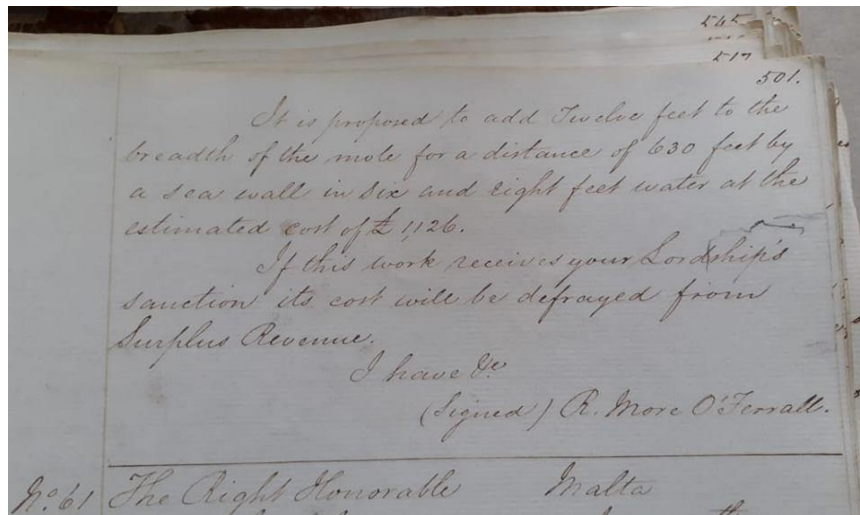 545
517
501.
It is proposed to add Twelve feet to the
breadth of the mole for a distance of 630 feet by
a sea wall in six and eight feet water at the
estimated cost of £1,126.
If this work receives your Lordship's
sanction its cost will be defrayed from
Surplus Revenue.
I have &c
(Signed) R. More O'Ferrall.
No. 61 The Right Honorable Malta